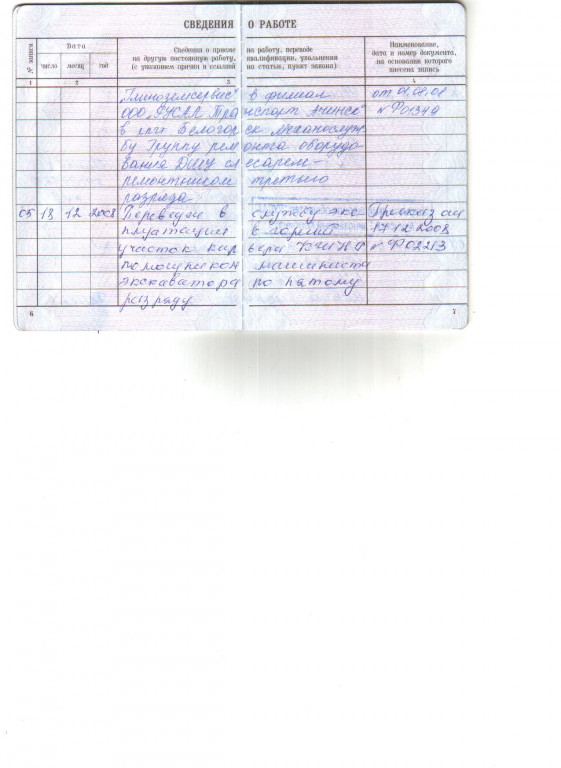 СВЕДЕНИЯ О РАБОТЕ
№ записи
Дата
число месяц год
Сведения о приеме на работу, переводе
на другую постоянную работу, квалификации, увольнении
(с указанием причин и ссылкой на статью, пункт закона)
Наименование,
дата и номер документа,
на основании которого
внесена запись
1 2 3 4
"Глиноземсервис" в филиал от 01.08.08
ООО "РУСАЛ Транспорт Ачинск" № Ф01340
в пгт Белогорск Механослуж
бу Группу ремонта оборудо
вания слесарем-
ремонтником третьего
разряда
05 18 12 2008 Переведен в службу экс Приказ от
плуатации горный 17.12.2008
участок карьера № Ф02213
помощником машиниста
экскаватора по пятому
разряду
6 7